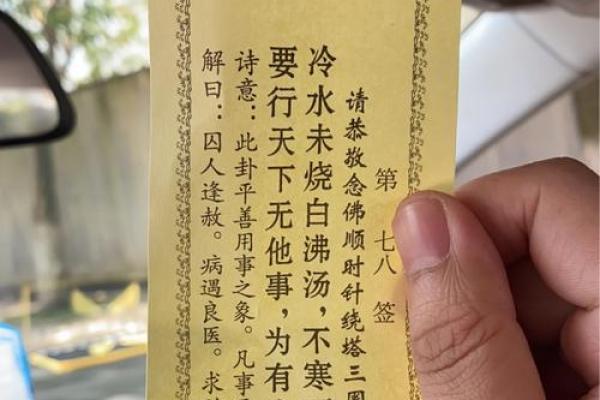 第七八签
请恭敬念佛顺时针绕塔三圈
冷水未烧白沸汤，不寒
要行天下无他事，为有
诗意：此卦平善用事之象。凡事
解曰：囚人逢赦。病遇良医。求